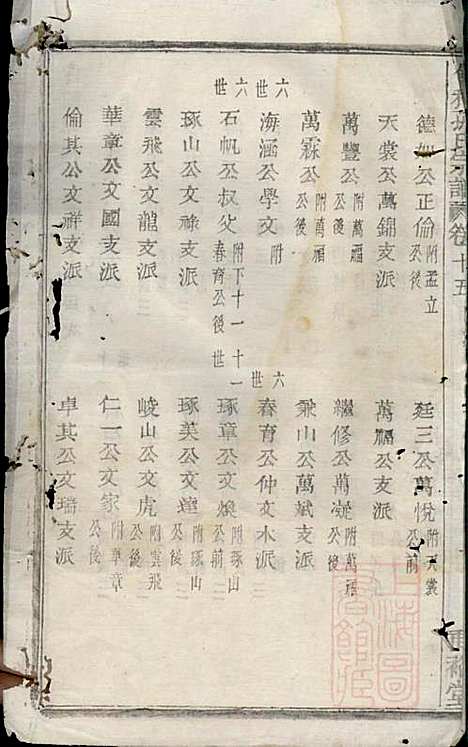 德如公正倫附孟立公後
廷三公萬悅附天裳公前
天裳公萬錦支派
萬福公支派
萬豐公附萬福公後
繼修公萬凝附萬福公後
萬霖公附萬福公後
秉山公萬斌支派
六世
海涵公學文附
六世
春育公仲文木派
六世
石帆公叔父附下十一十一世春育公後
琢章公文煥附琢山公前
琢山公文祿支派
琢英公文達附琢山公後
雲飛公文龍支派
峻山公文虎附雲飛公後
華章公文國支派
仁一公文家附華章公後
倫其公文祥支派
卓其公文瑞支派
氏宗譜
卷十五
堂
上海圖書館藏